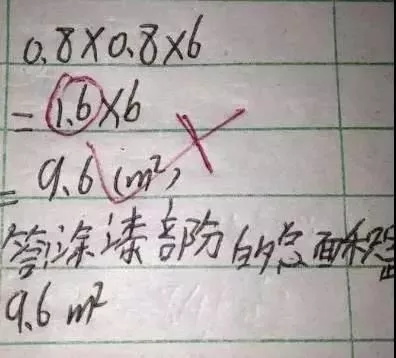 0.8×0.8×6
=1.6×6
=9.6(m²)
答涂漆部分的总面积是
9.6m²